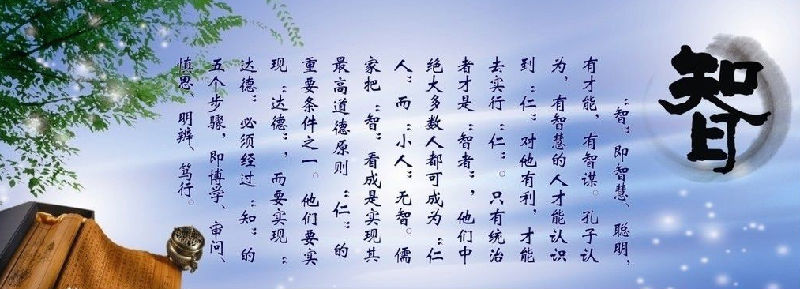 智
“智”即智慧、聪明，
有才能，有智谋。孔子认
为，有智慧的人才能认识
到“仁”对他有利，才能
去实行“仁”。只有统治
者才是“智者”，他们中
绝大多数人都可成为“仁
人”而“小人”无智。儒
家把“智”看成是实现其
最高道德原则“仁”的
重要条件之一。他们要实
现“达德”，而要实现“
达德”必须经过“知”的
五个步骤，即博学、审问、
慎思、明辨、笃行。